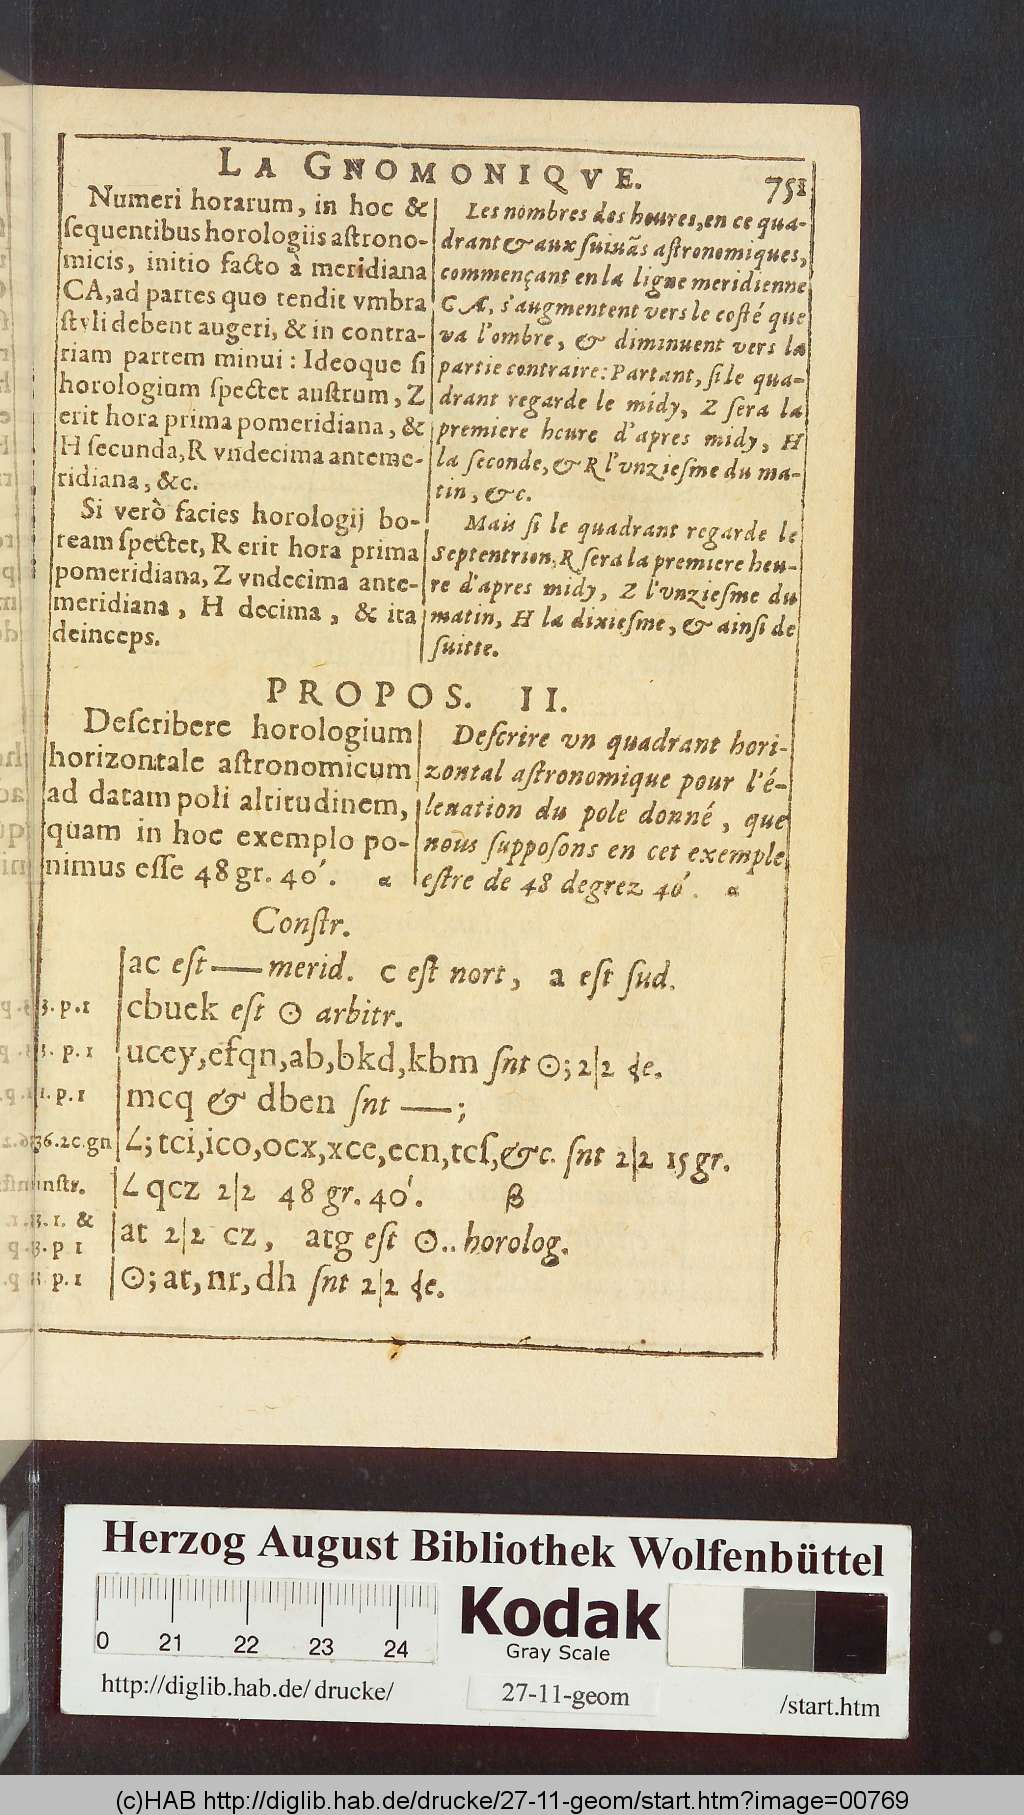 LA GNOMONIQVE. 751
Numeri horarum, in hoc &
ſequentibus horologiis aſtrono-
micis, initio facto à meridiana
CA, ad partes quo tendit vmbra
ſtyli debent augeri, & in contra-
riam partem minui : Ideoque ſi
horologium ſpectet auſtrum, Z
erit hora prima pomeridiana, &
H ſecunda, R vndecima anteme-
ridiana, &c.
Si verò facies horologij bo-
ream ſpectet, R erit hora prima
pomeridiana, Z vndecima ante-
meridiana, H decima, & ita
deinceps.
Les nombres des heures, en ce qua-
drant & aux ſuiuãs aſtronomiques,
commençant en la ligne meridienne
CA, s'augmentent vers le coſté que
va l'ombre, & diminuent vers la
partie contraire: Partant, ſi le qua-
drant regarde le midy, Z ſera la
premiere heure d'apres midy, H
la ſeconde, & R l'vnzieſme du ma-
tin, &c.
Mais ſi le quadrant regarde le
Septentrion, R ſera la premiere heu-
re d'apres midy, Z l'vnzieſme du
matin, H la dixieſme, & ainſi de
ſuitte.
PROPOS. II.
Deſcribere horologium
horizontale aſtronomicum
ad datam poli altitudinem,
quam in hoc exemplo po-
nimus eſſe 48 gr. 40'. α
Deſcrire vn quadrant hori-
zontal aſtronomique pour l'é-
leuation du pole donné, que
nous ſuppoſons en cet exemple
eſtre de 48 degrez 40'. α
Conſtr.
ac eſt — merid. c eſt nort, a eſt ſud.
3. p. 1 cbuek eſt ⊙ arbitr.
3. p. 1 ucey, efqn, ab, bkd, kbm ſnt ⊙; 2|2 de.
1. p. 1 mcq & dben ſnt —;
36. 2c. gn ∠; tci, ico, ocx, xce, ecn, tcſ, &c. ſnt 2|2 15 gr.
inſtr. ∠ qcz 2|2 48 gr. 40'. β
3. 1. &
3. p 1 at 2|2 cz, atg eſt ⊙.. horolog.
p. 1 ⊙; at, nr, dh ſnt 2|2 de.
Herzog August Bibliothek Wolfenbüttel
0 21 22 23 24
Kodak
Gray Scale
http://diglib.hab.de/ drucke/ 27-11-geom /start.htm
(c)HAB http://diglib.hab.de/drucke/27-11-geom/start.htm?image=00769